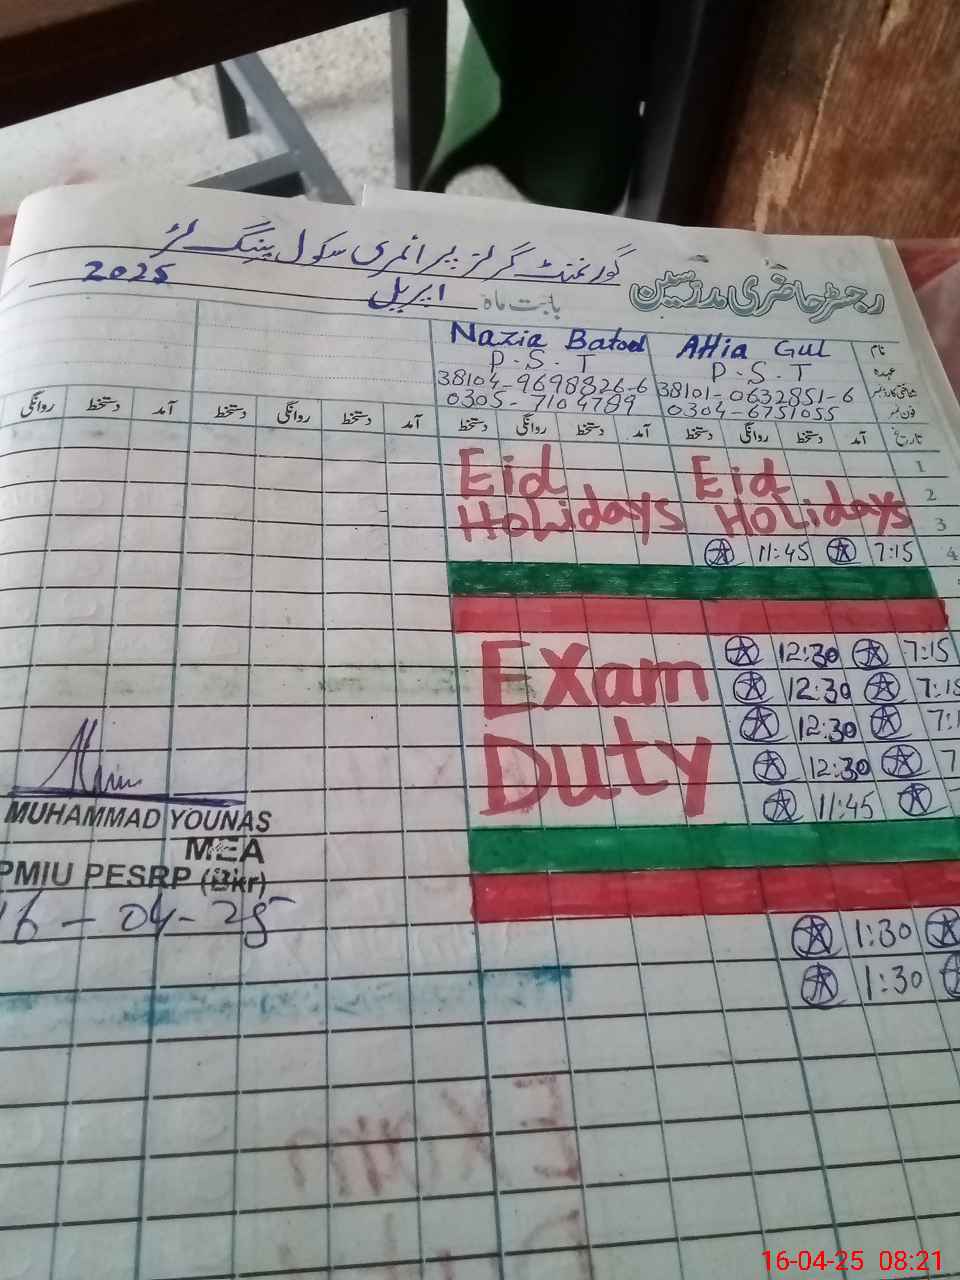 گورنمنٹ گرلز پرائمری سکول
رجسٹر حاضری مدرسین
بابت ماہ اپریل 2025
نام Attia Gul Nazia Batool
عہدہ P.S.T P.S.T
شناختی کارڈ نمبر 38101-0632851-6 38104-9698826-6
فون نمبر 0304-6751055 0305-7104789
تاریخ آمد دستخط روانگی دستخط آمد دستخط روانگی دستخط آمد دستخط روانگی دستخط آمد دستخط روانگی
1
2
3
Eid Holidays
Eid Holidays
4 7:15 11:45
7:15 12:30
7:15 12:30
12:30
12:30
11:45
Exam
Duty
1:30
1:30
MUHAMMAD YOUNAS
MEA
PMIU PESRP (Bkr)
16-04-25
16-04-25 08:21